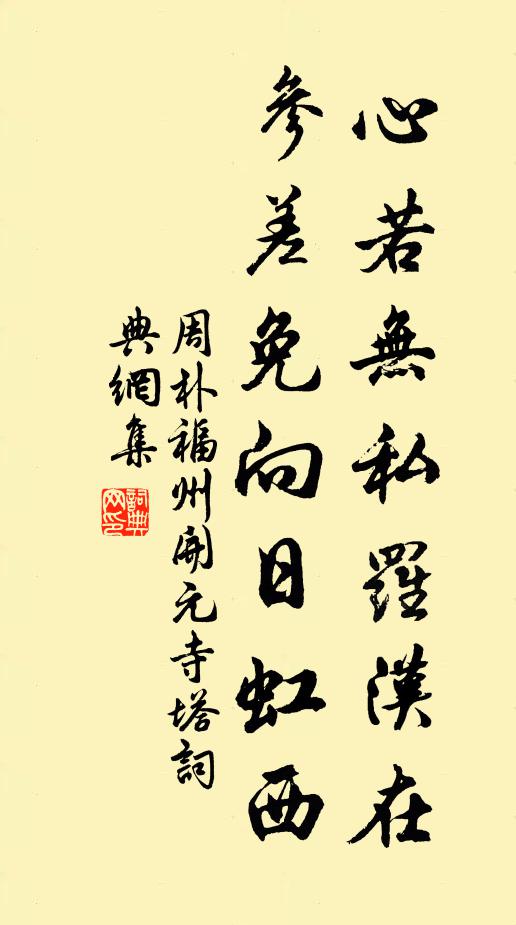 心若無私羅漢在
參差免向日虹西
周朴福州開元寺塔詞
典網集
詞典网印